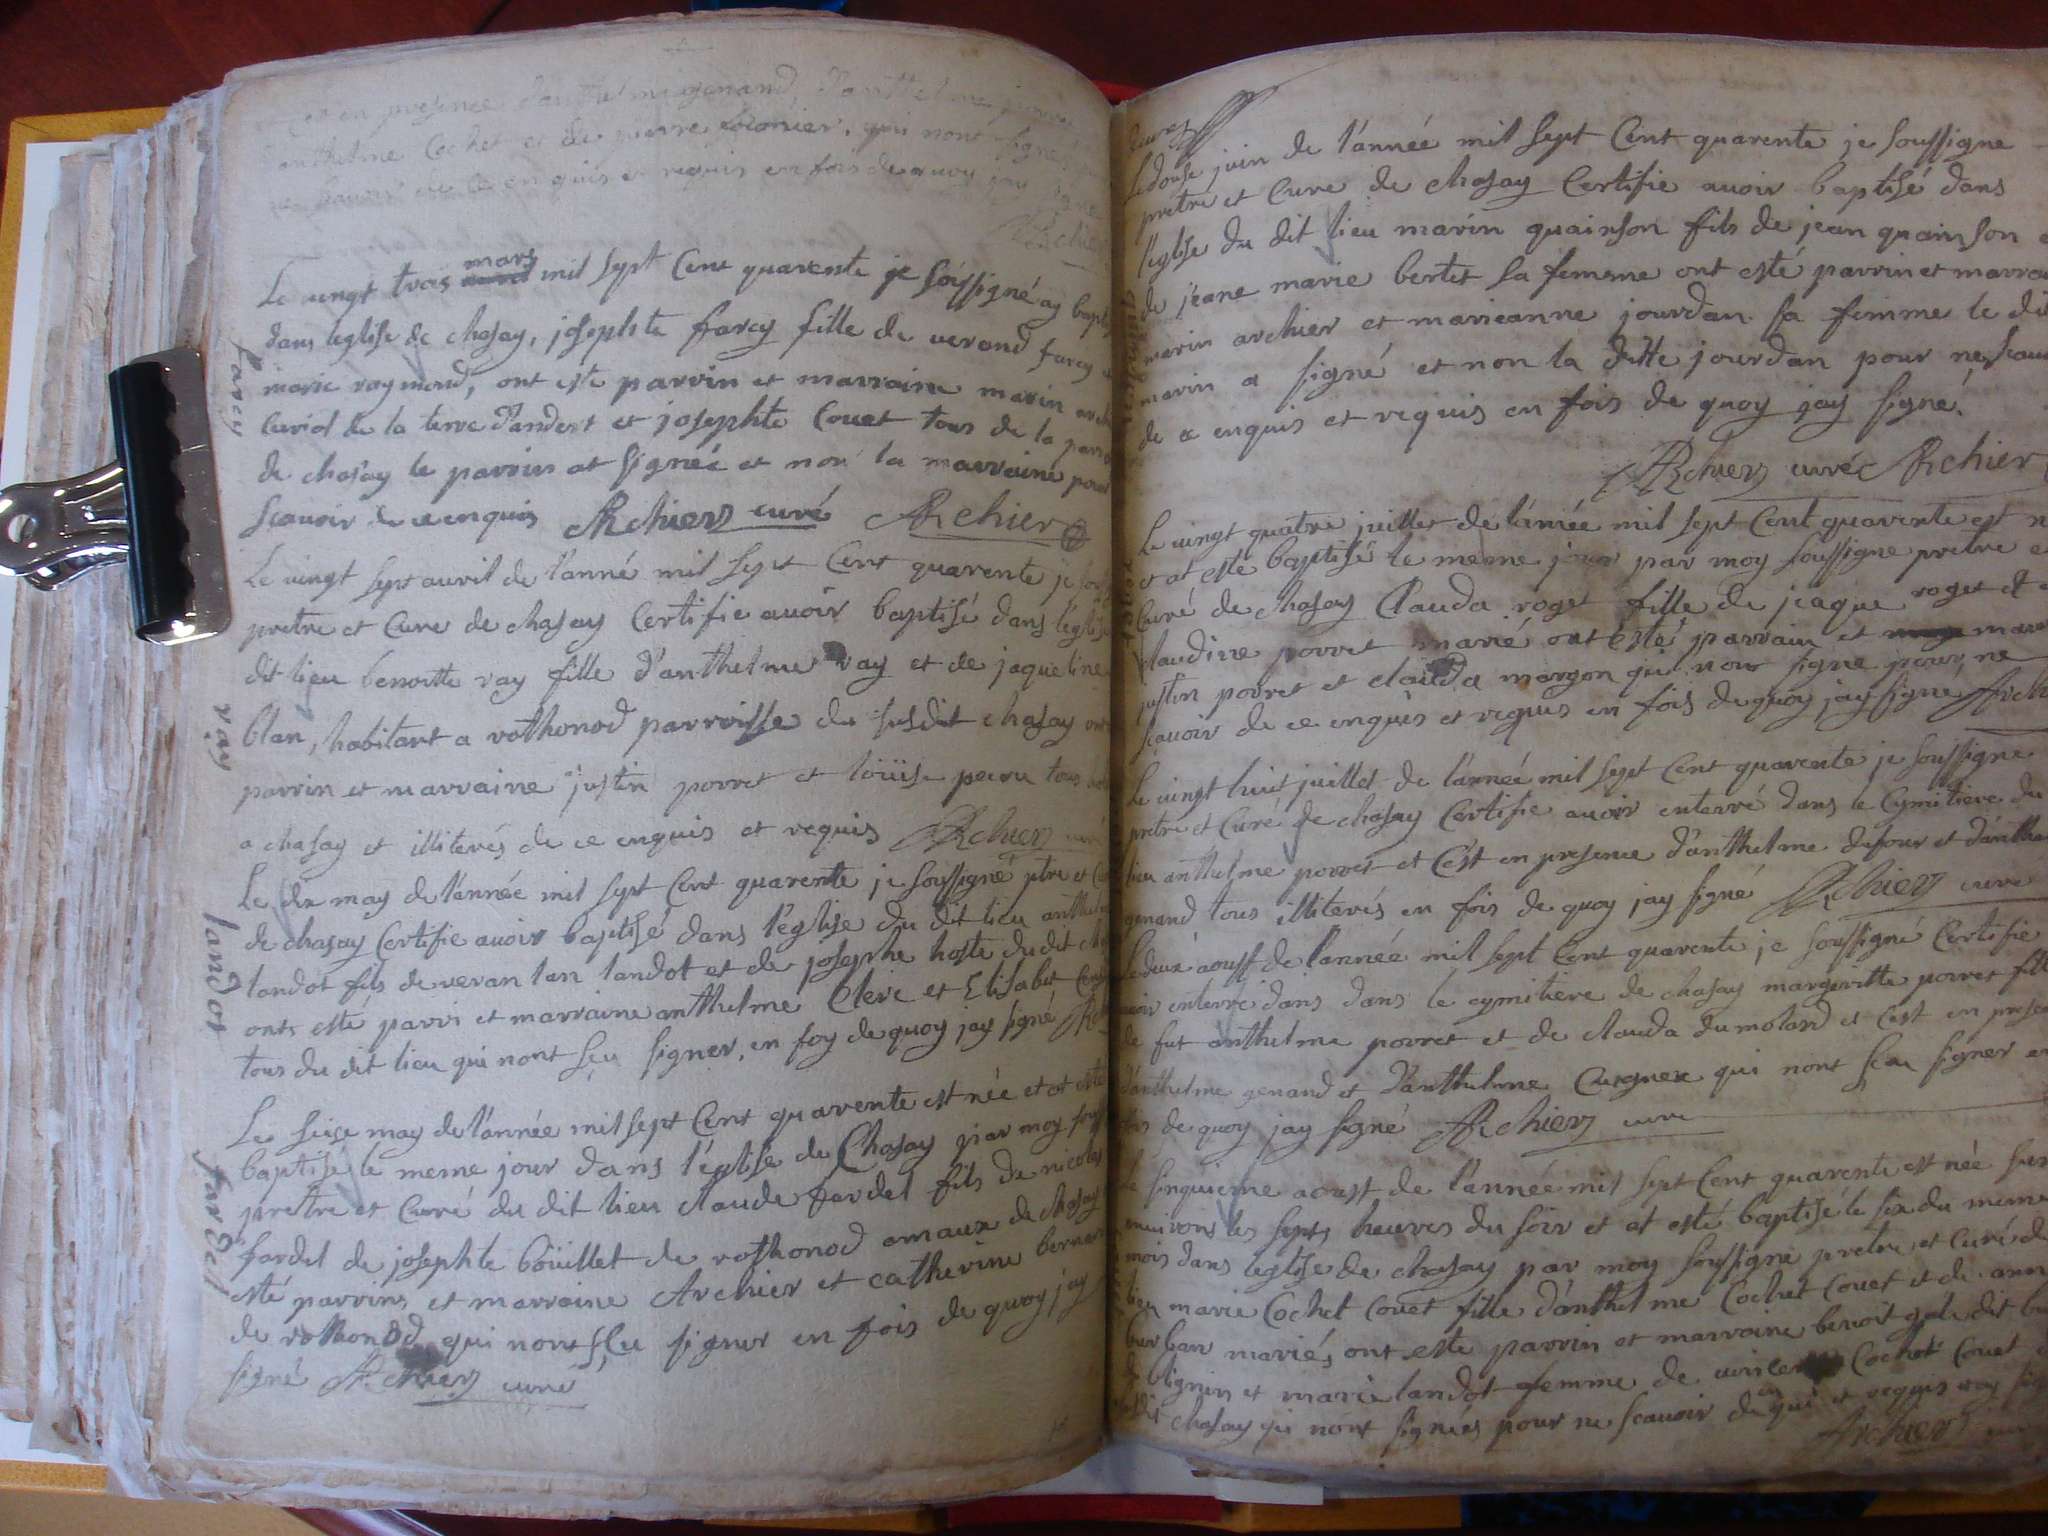 et en presence d'anthelme genand, d'anthelme
anthelme Cochet et de pierre fornier, qui nont signé
scavoir de ce enquis et requis en fois de quoy jay signé
Archier
Le vingt trois mars mil sept Cent quarente je soussigné ay bapt
dans leglise de chasay, josephte farcy fille de verand farcy et
marie raymond, ont esté parrin et marraine marin archi
Curial de la terre d'andert et josephte Couet tous de la parr
de chasay le parrin at signéé et non la marraine pour
scavoir de ce enquis Archier curé Archier
farcy
Le vingt sept avril de l'anné mil sept Cent quarente je sous
pretre et Cure de chasay Certifie avoir baptisé dans l'eglise
dit lieu benoitte ray fille d'anthelme ray et de jaqueline
blan, habitant a rothonod parroisse du susdit chasay ont
parrin et marraine justin porret et loüise peiru tous
a chasay et illiterés de ce enquis et requis Archier curé
ray
Le dix may de l'année mil sept Cent quarente je soussigné ptre et Cu
de chasay Certifie avoir baptisé dans l'eglise du dit lieu anthelme
landot fils de veran lan landot et de josephe hoste du dit cha
onts esté parri et marraine anthelme Clerc et Elisabet
tous du dit lieu qui nont sçu signer, en foy de quoy jay signé Arch
landot
Le seise may de l'année mil sept Cent quarente est née et at esté
baptisé le meme jour dans l'église de Chasay par moy souss
pretre et Curé du dit lieu claude fardel fils de nicolas
fardel de josephte boüillet de rothonod amaux de chasay
esté parrins et marraine Archier et catherine bernar
de rothonod qui nont sçu signer en fois de quoy jay
signé Archier curé
fardel
Le douse juin de l'année mil sept Cent quarente je soussigne
pretre et Cure de chasay Certifie avoir baptisé dans
l'eglise du dit lieu marin quainson fils de jean quainson e
de jeane marie bertet sa femme ont esté parrin et marrai
marin archier et marieanne jourdan sa femme le dit
marin a signé et non la ditte jourdan pour ne scau
de ce enquis et requis en fois de quoy jay signé.
Archier curé Archier
Le vingt quatre juillet de l'année mil sept Cent quarente est n
et at esté baptisé le meme jour par moy soussigne pretre e
Curé de chasay Clauda roget fille de jeaque roget et
claudine porret marié ont esté parrain et marr
justin porret et clauda margon qui nont signe pour ne
scavoir de ce enquis et requis en fois de quoy jay signé Archi
Le vingt huit juillet de l'année mil sept Cent quarente je soussigne
pretre et Curé de chasay Certifie avoir enterré dans le Cymitiere du
lieu anthelme porret et C'est en presence d'anthelme dufour et d'anthe
genand tous illiterés en fois de quoy jay signé Archier cure
Le deux aoust de l'année mil sept Cent quarente je soussigné Certifie
avoir enterré dans dans le cymitiere de chasay margueritte porret fille
de fut anthelme porret et de clauda dumoland et C'est en presen
d'anthelme genand et d'anthelme Cuegnex qui nont scu signer en
fois de quoy jay signé Archier cure
Le sinquieme aoust de l'année mil sept Cent quarente est née sur
environs les septs heures du soir et at esté baptisé le six du meme
mois dans leglise de chasay par moy soussigné pretre et Curé du
lieu marie Cochet Couet fille d'anthelme Cochet Couet et de ann
burban mariés ont esté parrin et marraine benoit gele dit
de lignin et marie landot femme de vincent Cochet Couet
dit chasay qui nont signés pour ne scavoir de enquis et requis ay sign
Archier